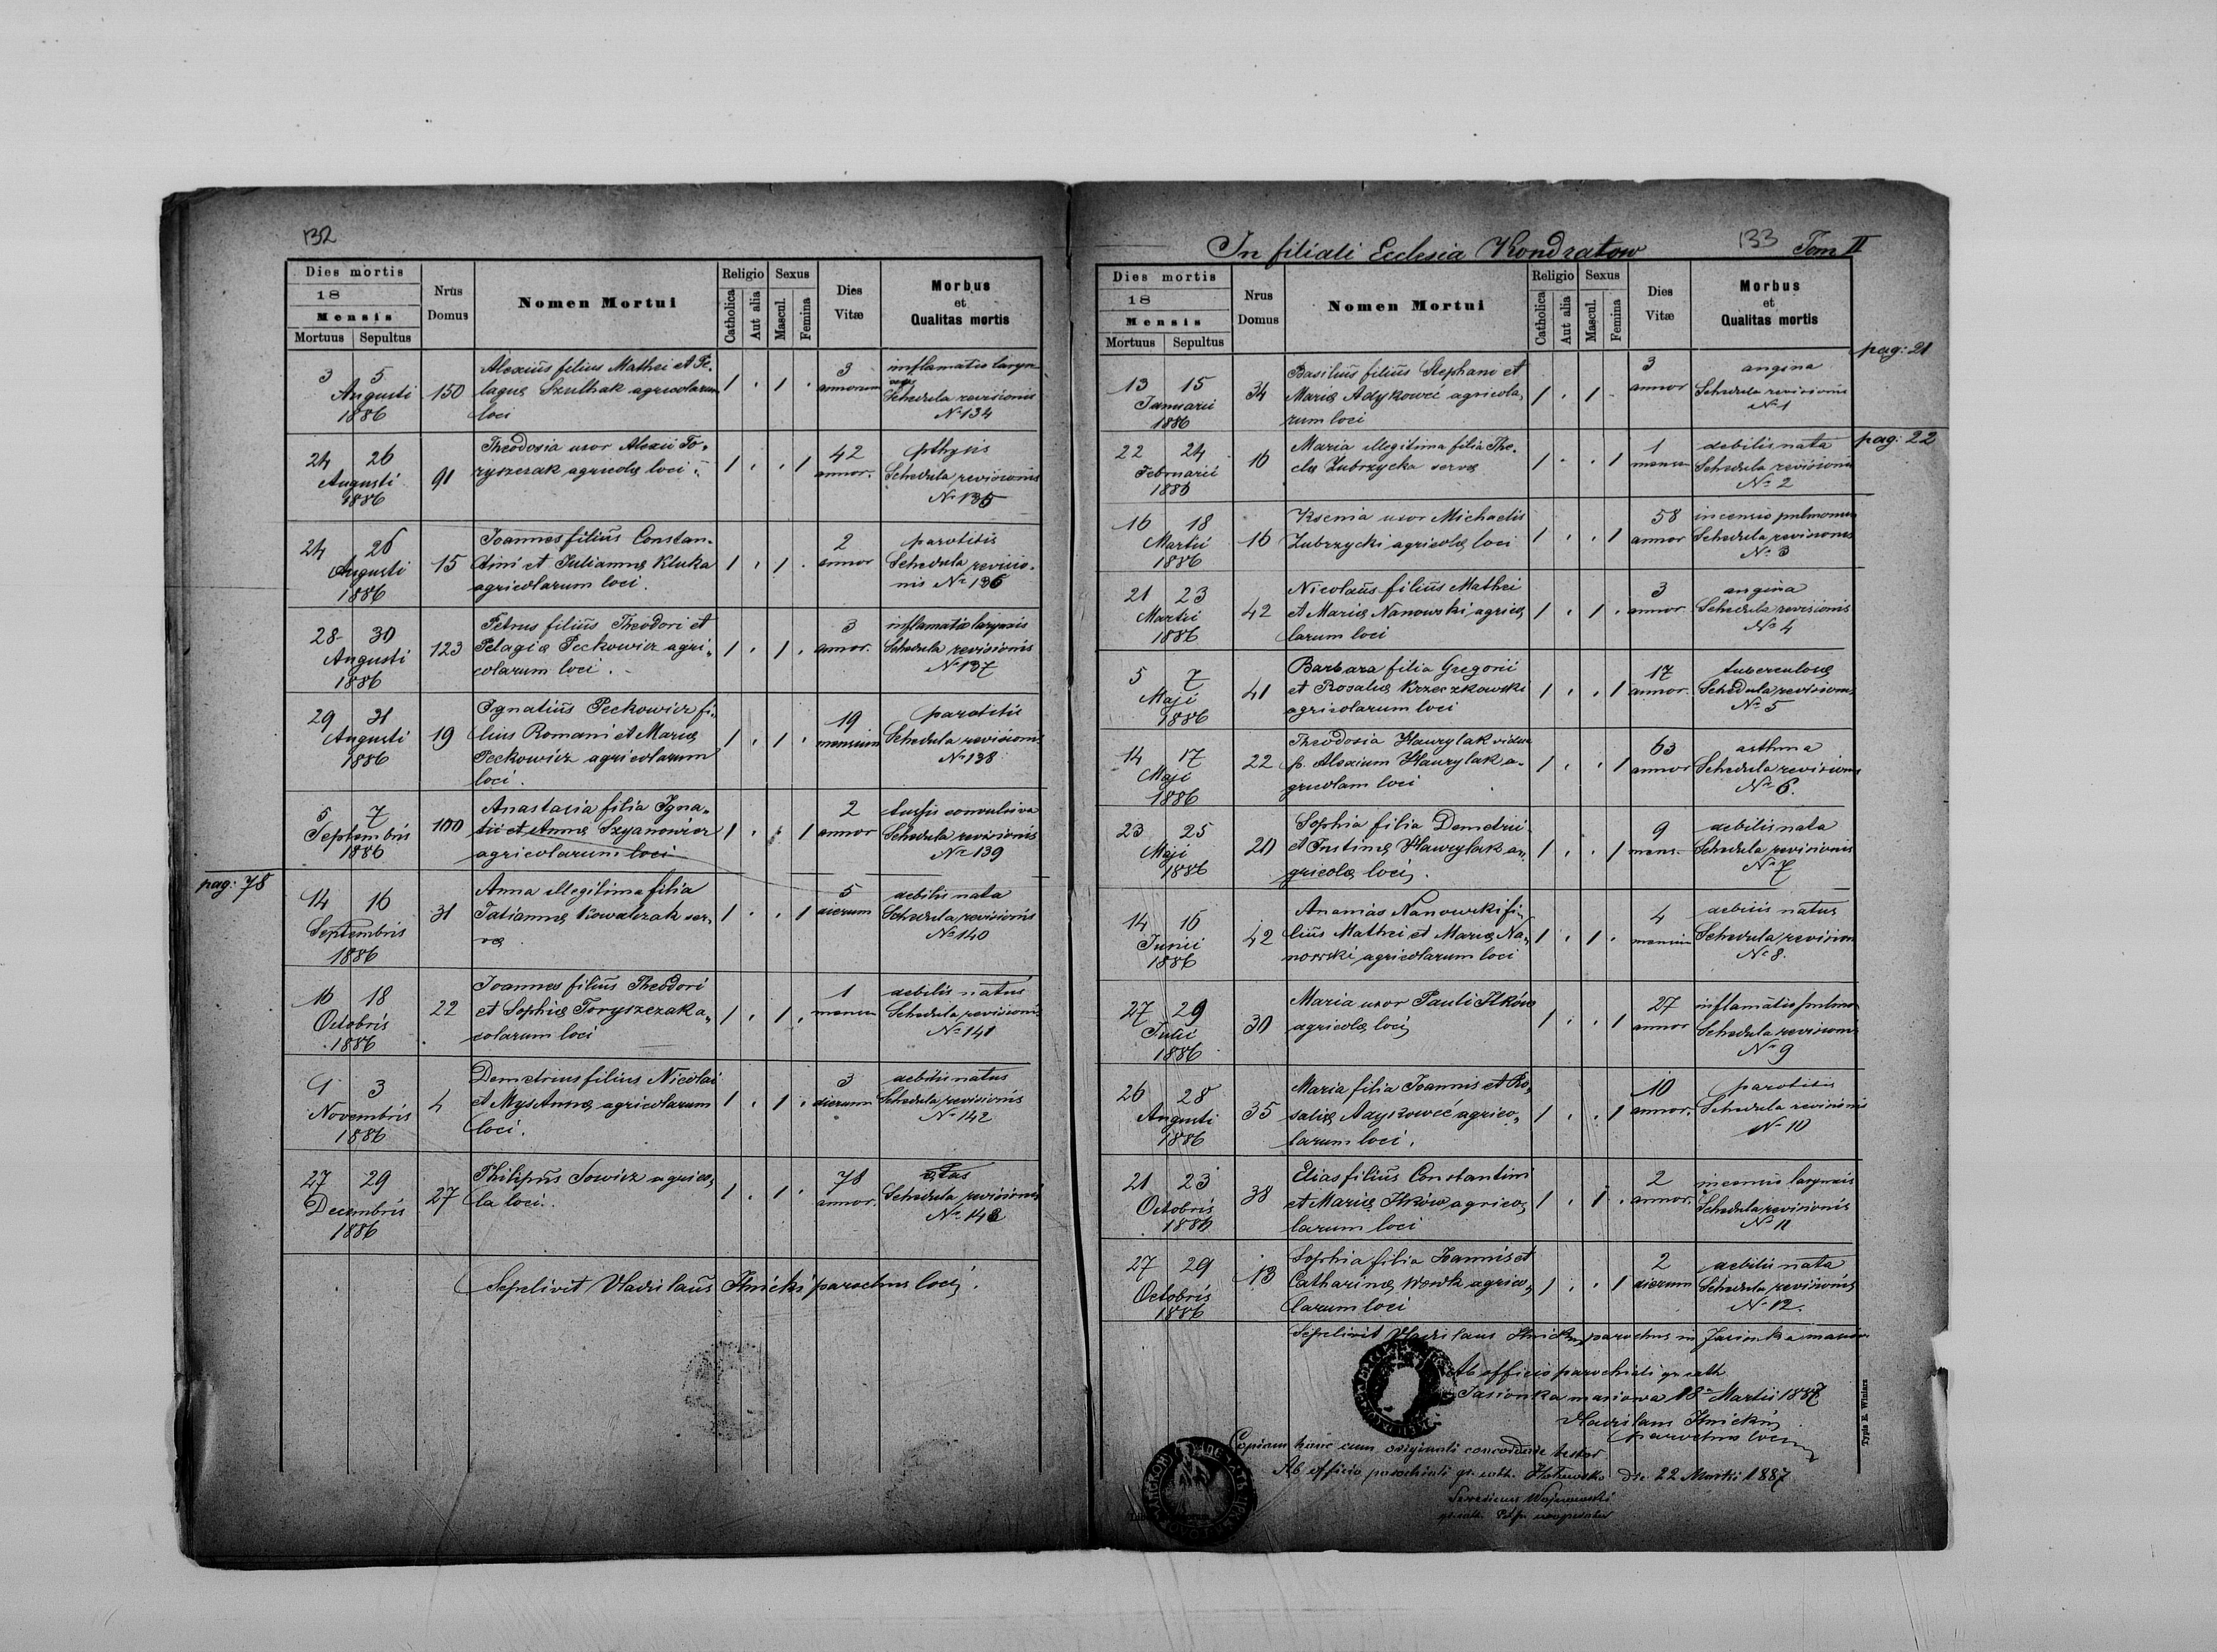 132
Dies mortis
18
Mensis
Mortuus Sepultus
Nrus Domus
Nomen Mortui
Religio
Catholica
Aut alia
Sexus
Mascul.
Femina
Dies Vitæ
Morbus et Qualitas mortis
3 5 Augusti 1886
150
Alexius filius Mathei et Pe-
lagiæ Szulhak agricolarum
loci
1 . 1 .
3 annorum
inflamatio laryn-
Schedula revisionis
No 134
24 26 Augusti 1886
91
Theodosia uxor Alexii To-
ryszczak agricolæ loci
1 . . 1
42 annor.
pthysis
Schedula revisionis
No 135
24 26 Augusti 1886
15
Joannes filius Constan-
tini et Juliannæ Kluka
agricolarum loci.
1 . 1 .
2 annor
parotitis
Schedula revisio-
nis No 136
28 30 Augusti 1886
123
Petrus filius Theodori et
Pelagiæ Peckowicz agri-
colarum loci.
1 . 1 .
3 annor.
inflamatio laryngis
Schedula revisionis
No 137
29 31 Augusti 1886
19
Ignatius Peckowicz fi-
lius Romani et Mariæ
Peckowicz agricolarum
loci.
1 . 1 .
19 mensium
parotitis
Schedula revisionis
No 138
5 7 Septembris 1886
100
Anastasia filia Igna-
tii et Annæ Szyanowicz
agricolarum loci
1 . . 1
2 annor
tussis convulsiva
Schedula revisionis
No 139
pag: 78
14 16 Septembris 1886
31
Anna illegitima filia
Tatiannæ Kowalczak ser-
væ.
1 . . 1
5 dierum
debilis nata
Schedula revisionis
No 140
16 18 Octobris 1886
22
Joannes filius Theodori
et Sophiæ Toryszczak a-
colarum loci
1 . 1 .
1 mensis
debilis natus
Schedula revisionis
No 141
1 3 Novembris 1886
4
Demetrius filius Nicolai
et Mys Annæ agricolarum
loci.
1 . 1 .
3 dierum
debilis natus
Schedula revisionis
No 142
27 29 Decembris 1886
27
Philipus Sowicz agrico-
la loci.
1 . 1 .
78 annor.
ætas
Schedula revisionis
No 143
Sepelivit Vladislaus Ilnicki parochus loci.
In filiali Ecclesia Kondratow
133
Tom II
Dies mortis
18
Mensis
Mortuus Sepultus
Nrus Domus
Nomen Mortui
Religio
Catholica
Aut alia
Sexus
Mascul.
Femina
Dies Vitæ
Morbus et Qualitas mortis
pag: 21
13 15 Januarii 1886
34
Basilius filius Stephani et
Mariæ Adykowcí agricola-
rum loci
1 . 1 .
3 annor
angina
Schedula revisionis
No 1
pag: 22
22 24 Februarii 1886
16
Maria illegitima filia The-
clæ Zubrzycka servæ
1 . . 1
1 mensis
debilis nata
Schedula revisionis
No 2
16 18 Martii 1886
16
Ksenia uxor Michaelis
Zubrzycki agricolæ loci
1 . . 1
58 annor
incensio pulmonum
Schedula revisionis
No 3
21 23 Martii 1886
42
Nicolaus filius Mathei
et Mariæ Nanowski agrico-
larum loci
1 . 1 .
3 annor.
angina
Schedula revisionis
No 4
5 7 Maji 1886
41
Barbara filia Gregorii
et Rosaliæ Krzeczkowski
agricolarum loci
1 . . 1
17 annor.
tuberculosæ
Schedula revisionis
No 5
14 17 Maji 1886
22
Theodosia Hawrylak vidua
p. Alexium Hawrylak a-
gricolam loci
1 . . 1
63 annor
asthma
Schedula revisionis
No 6.
23 25 Maji 1886
20
Sophia filia Demetrii
et Justinæ Hawrylak a-
gricolæ loci.
1 . . 1
9 mens.
debilis nata
Schedula revisionis
No 7
14 16 Junii 1886
42
Ananias Nanowski fi-
lius Mathei et Mariæ Na-
nowski agricolarum loci
1 . 1 .
4 mensium
debilis natus
Schedula revision
No 8.
27 29 Julii 1886
30
Maria uxor Pauli Ilków
agricolæ loci
1 . . 1
27 annor
inflamatio pulmo-
Schedula revisionis
No 9
26 28 Augusti 1886
35
Maria filia Joannis et Ro-
saliæ Adykowcí agrico-
larum loci.
1 . . 1
10 annor.
parotitis
Schedula revisionis
No 10
21 23 Octobris 1886
38
Elias filius Constantini
et Mariæ Ilków agrico-
larum loci
1 . 1 .
2 annor.
incensio laryngis
Schedula revisionis
No 11
27 29 Octobris 1886
13
Sophia filia Joannis et
Catharinæ Wowk agrico-
larum loci
1 . . 1
2 dierum
debilis nata
Schedula revisionis
No 12.
Sepelivit Vladislaus Ilnicki parochus in Jasionka masiow.
Ab officio parochiali gr. cath.
Jasionka masiowa 18 Martii 1887
Vladislaus Ilnicki
parochus loci
Copiam hanc cum originali concordare testor
Ab officio parochiali gr. cath. die 22 Martii 1887
Typis E. Winiarz